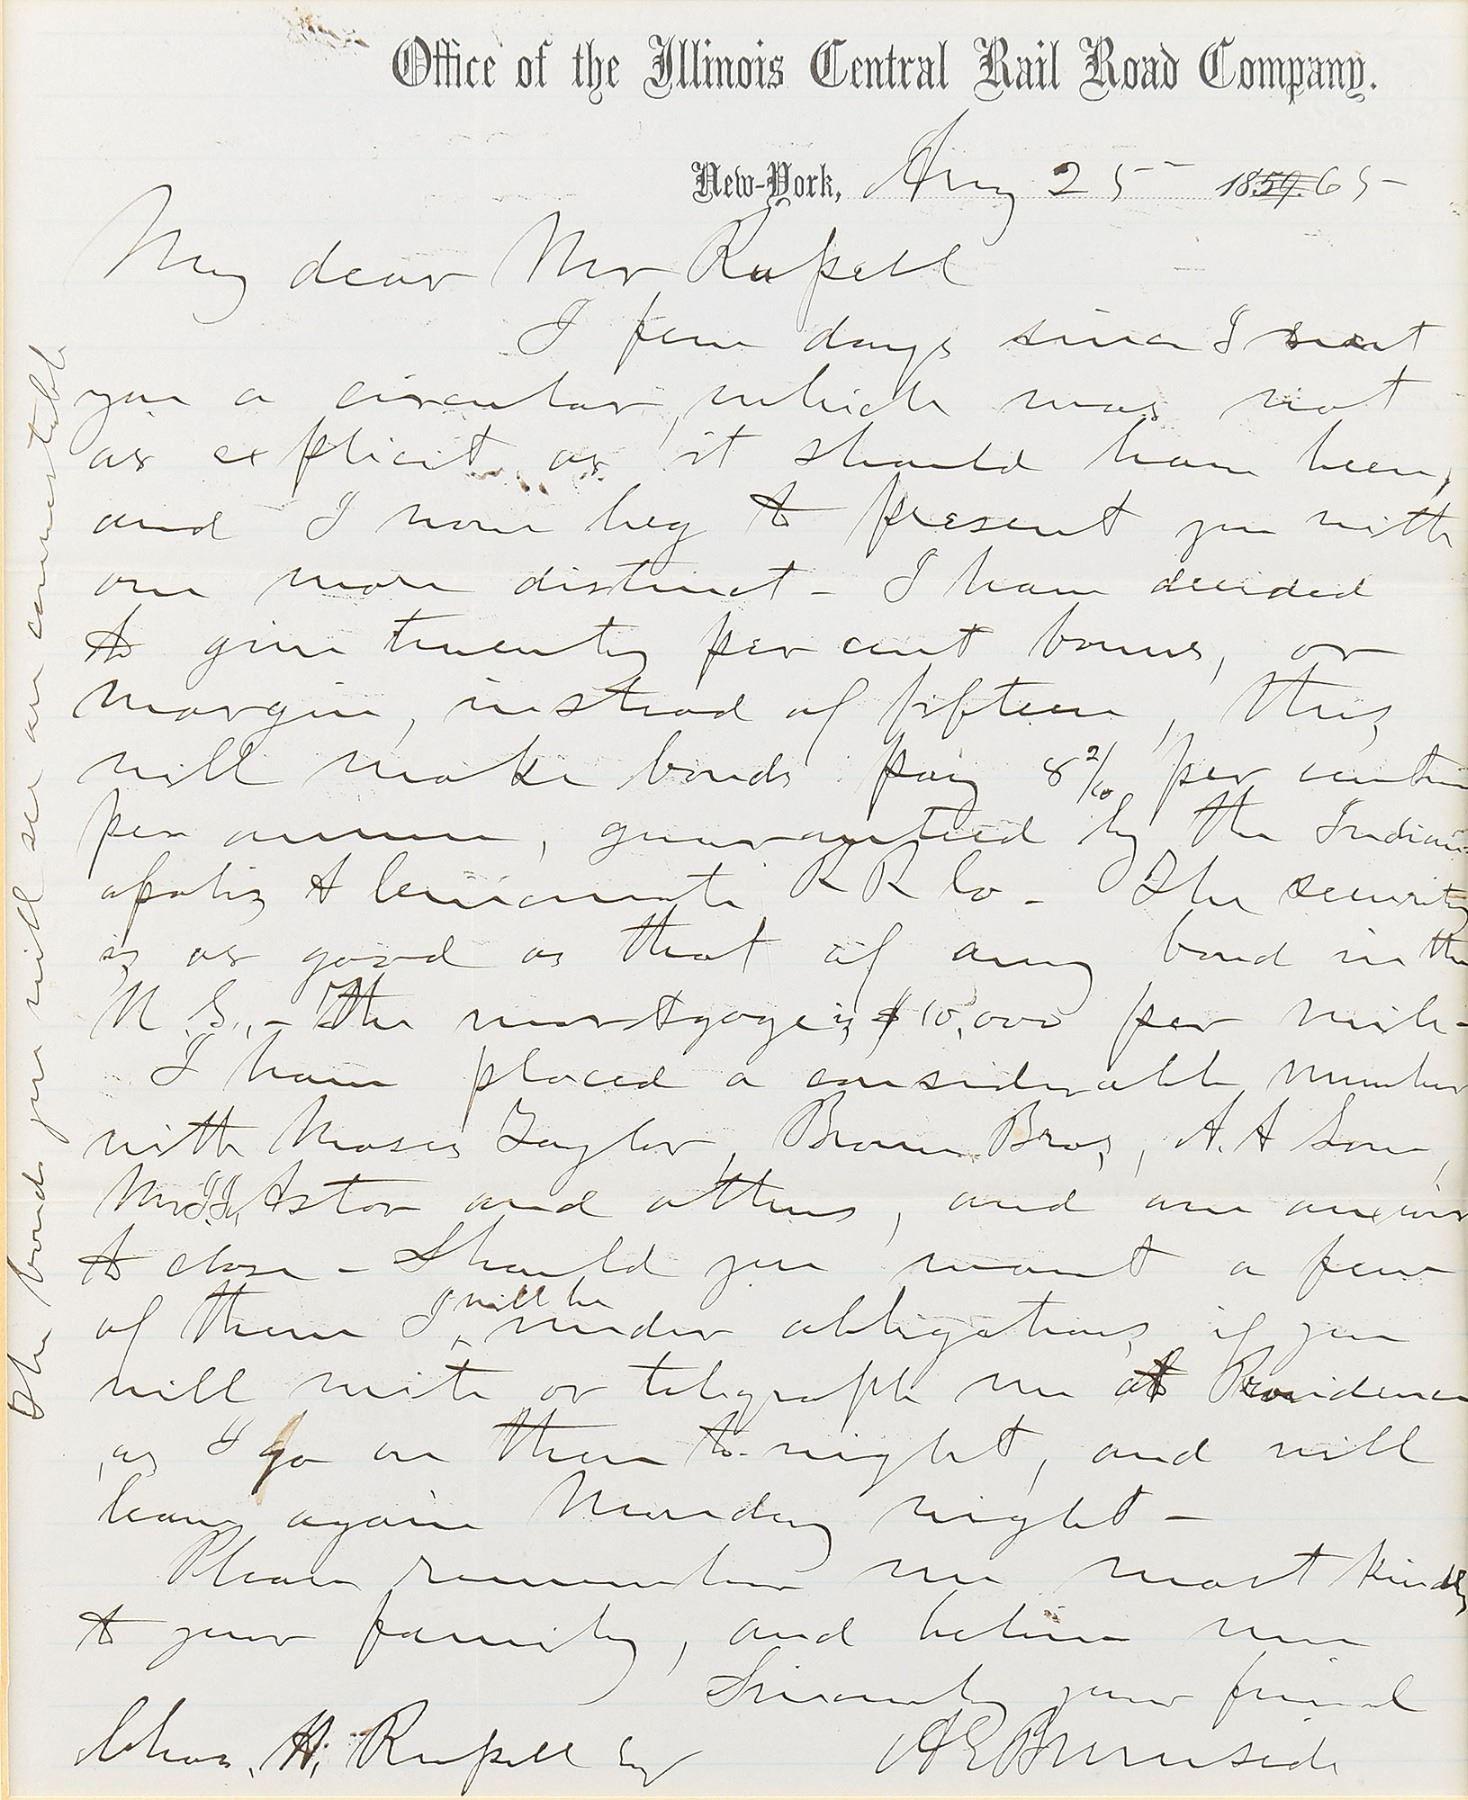 Office of the Illinois Central Rail Road Company.
New-York, Aug 25 1859. 65
My dear Mr Russell
I few days since I sent
you a circular, which was not
as explicit as it should have been,
and I now beg to present you with
one more distinct - I have decided
to give twenty per cent bonus, or
margin, instead of fifteen, this
will make bonds pay 8 2/10 per centum
per annum, guaranteed by the Indian-
apolis & Cincinnati R R Co - The security
is as good as that of any bond in the
U. S. - The mortgage is $10,000 per mile -
I have placed a considerable number
with Moses Taylor, Brown Bros, A. A Low,
Mr J. J. Astor and others, and am anxious
to close - Should you want a few
of them I will be under obligations if you
will write or telegraph me at Providence
as I go on there to-night, and will
leave again Monday night -
Please remember me most kindly
to your family, and believe me
Sincerely your friend
A E Burnside
Chas. H. Russell Esq
The bonds you will see are convertible